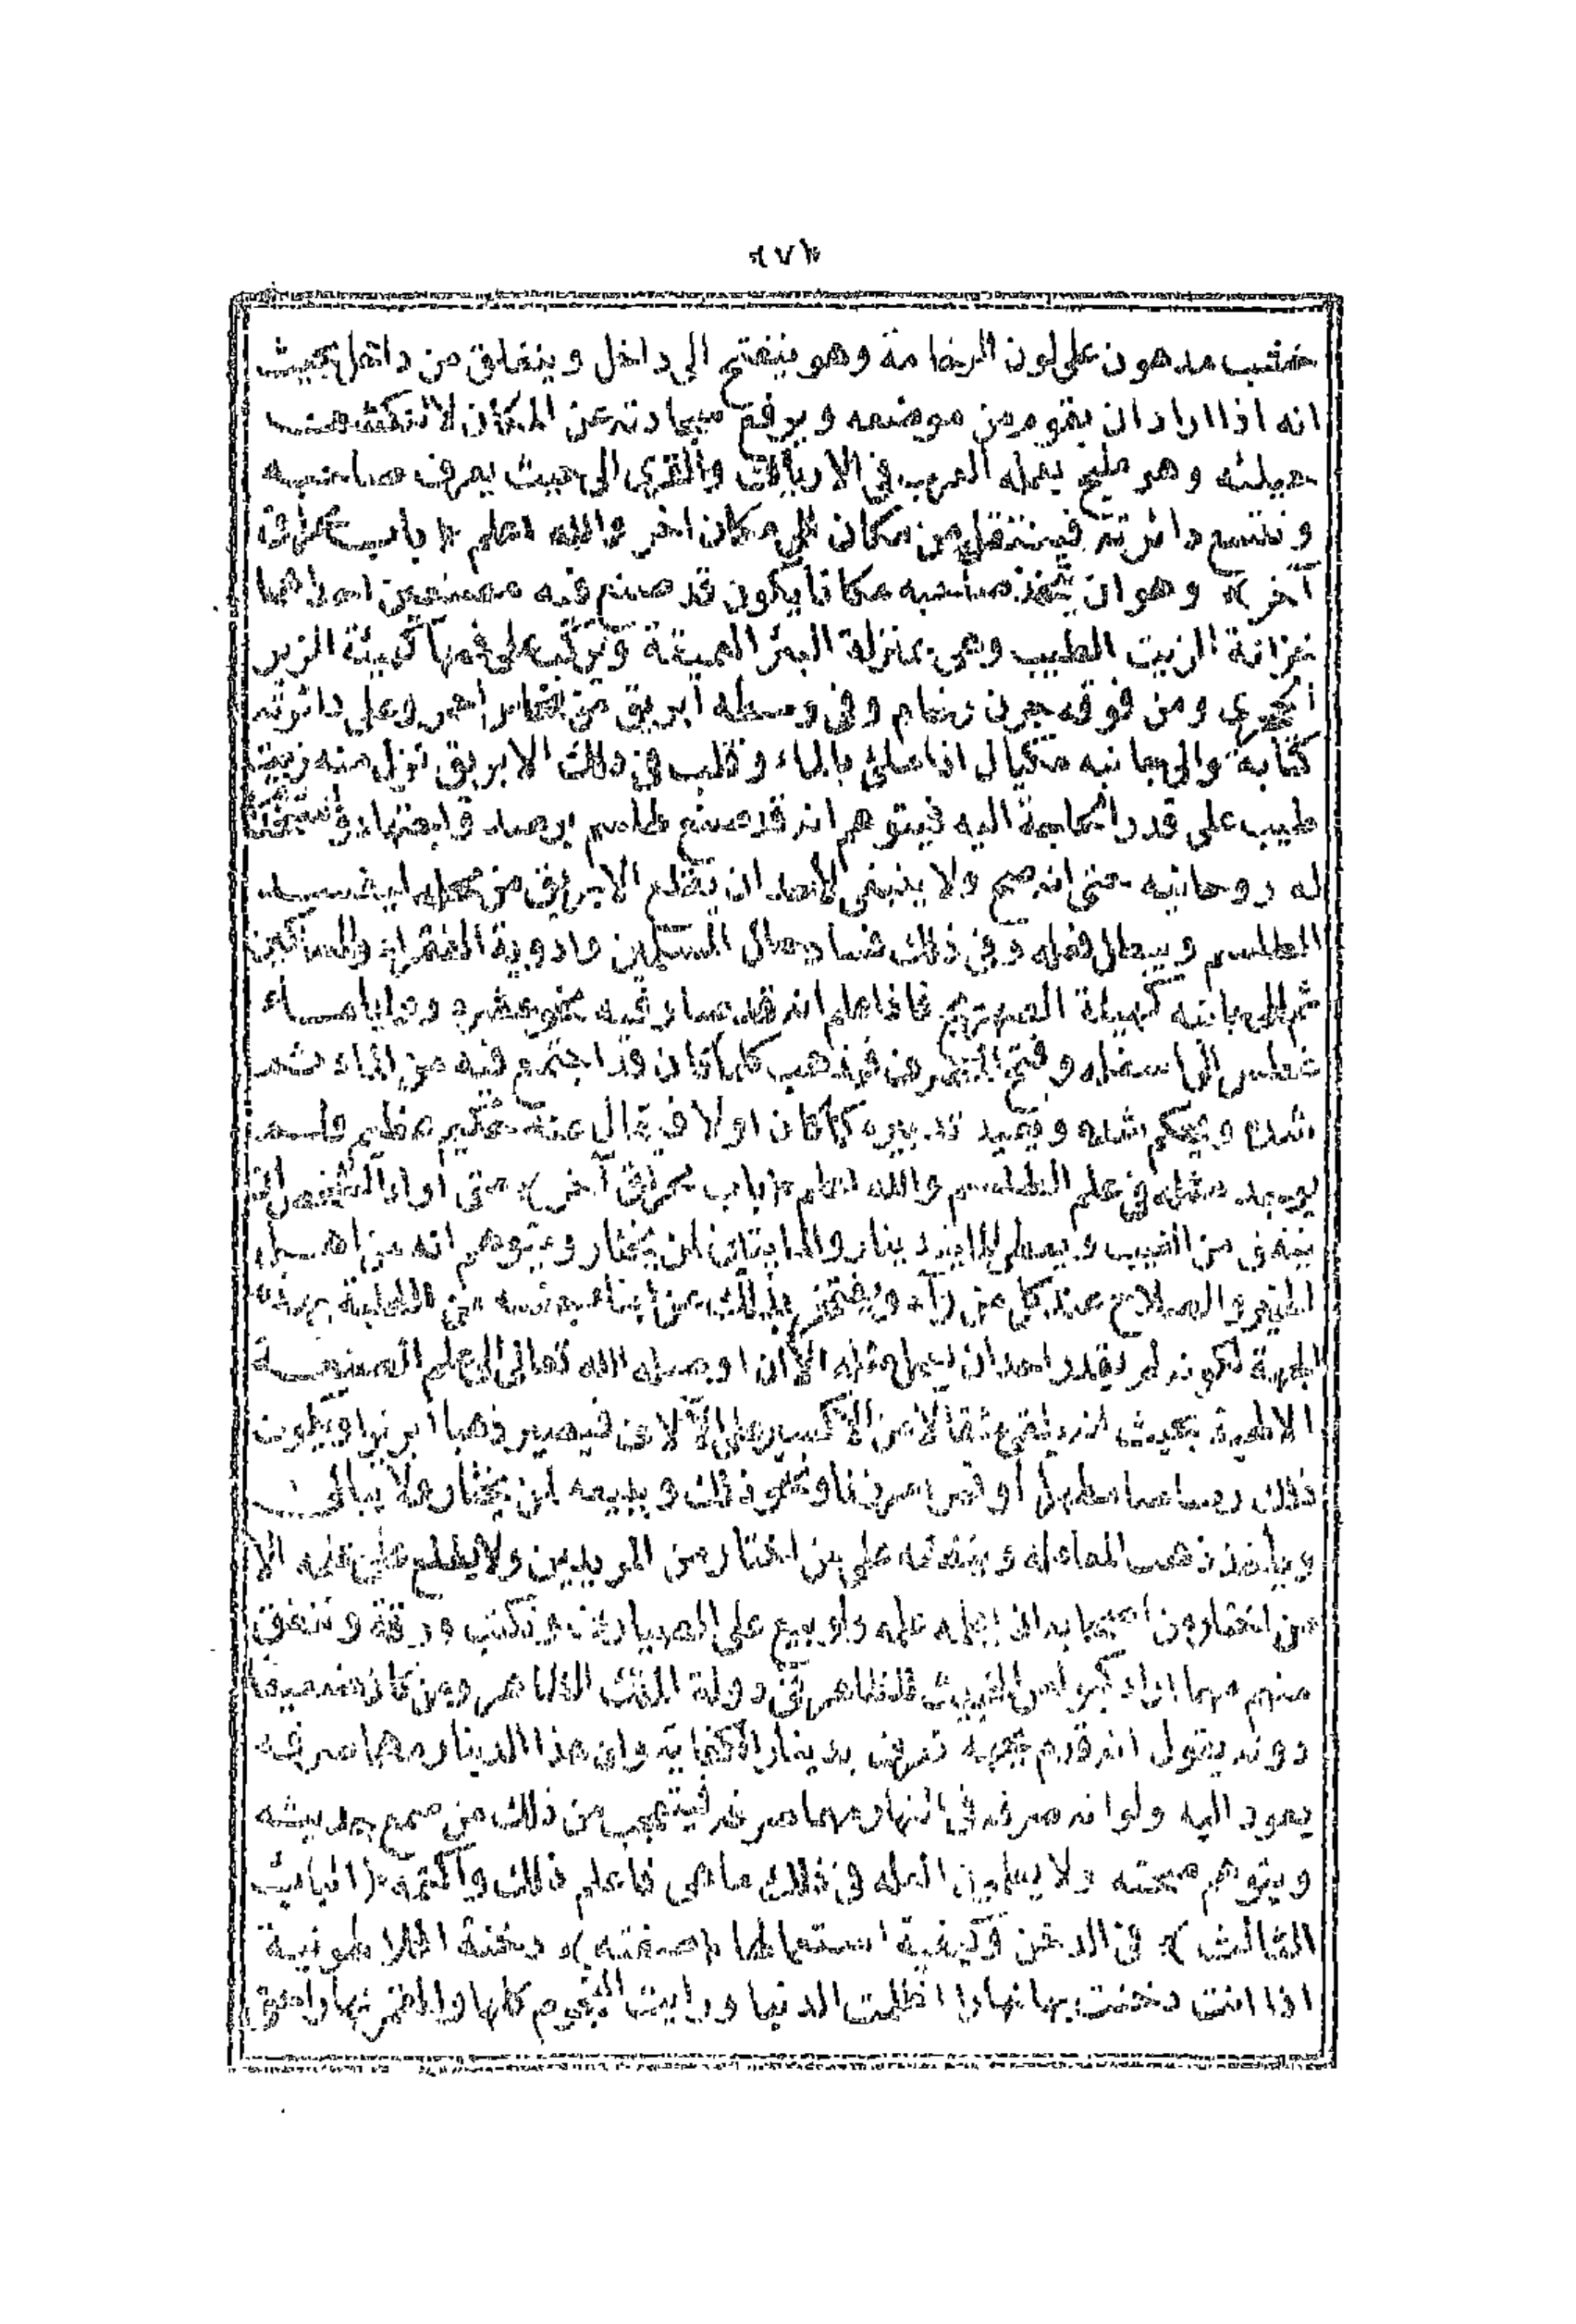 ﴿٧﴾
خشب مدهون على لون الرخامة وهو ينفتح الى داخل وينغلق من داخل بحيث
انه اذا اراد ان يقوم من موضعه ويرفع سجادته عن المكان لا تنكشف
حيلته وهو مليح يعمله العرب في الارياف والقرى الى حيث يعرف صاحبه
وتتسع دائرته فينتقل من مكان الى مكان اخر والله اعلم ﴿باب مخراق
آخر﴾ وهو ان يتخذ صاحبه مكانا يكون قد صنع فيه مصنعين احداهما
خزانة الزيت الطيب وهى بمنزلة البئر العميقة وتركب على فمها كهيئة الزير
الحجرى ومن فوقه جرن رخام وفى وسطه ابريق من فخار احمر وعلى دائرته
كتابة والى جانبه مكيال اذا ملئ بالماء وقلب فى ذلك الابريق نزل منه زيت
طيب على قدر الحاجة اليه فيتوهم انه قد صنع طلسم برصد
له روحانيه حتى انه صح ولا ينبغى لاحد ان يقلع الابريق من محله ليفسد
الطلسم ويبطل فعله وفى ذلك وادوية الفقراء والمساكين
ثم الى جانبه كهيئة الصهريج فاذا علم انه قد صار فيه نحو عشرة
غطس الى اسفله وفتح فيذهب كلما كان قد اجتمع فيه من الماء ثم
شده ويحكم شده ويعيد تدبيره كما كان اولا فيقال عنه عظيم
يوجد مثله فى علم الطلسم والله اعلم ﴿باب مخراق آخر﴾ متى اراد ان
ينفق من الغيب ويعطى دينار والمايتان لمن يختار ويتوهم انه من اهل
الخير والصلاح عند كل من رآه ويفتخر بذلك عن ابناء جنسه من بهذه
الجهة لكونه لم يقدر احد ان يعمل مثله الا ان اوصله الله تعالى الى علم الصنعة
الالهية بحيث انه يلقى مثقالا من الاكسير على الآلاف فيصير ذهبا ابريزا ويكون
ذلك رصاصا مطهرا او ونحو ذلك ويبيعه لمن يختار ولا يبالى
وياخذ ذهب المعامله وينفقه على من اختار من المريدين ولا يطلع على هذه الا
من اختار ون وتكتب ورقة وتنفق
منهم مهما اراد فى دولة الملك الظاهر ومن كان ضعيفا
دونه يقول انه قدم بجهة تعرف بدينار الكفاية وان هذا الدينار مهما صرفه
يعود اليه ولو انه صرفه فى النهار مهما صرفه فيتعجب من ذلك من سمع بحديثه
ويتوهم صحته ولا يعلمون العله فى ذلك ما هى فاعلم ذلك واكتمه ﴿الباب
الثالث﴾ فى الدخن وكيفية استعمالها ﴿صفته﴾ دخنة افلاطونية
اذا انت دخنت بها نهارا اظلمت الدنيا ورايت النجوم كلها والقمر نهارا